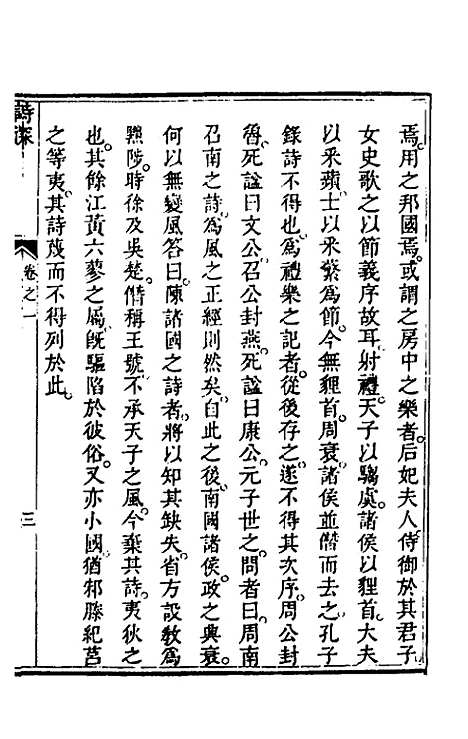 焉。用之邦國焉。或謂之房中之樂者。后妃夫人侍御於其君子
女史歌之以節義序故耳。射禮。天子以騶虞。諸侯以貍首。大夫
以采蘋。士以采蘩為節。今無貍首。周衰。諸侯並僭而去之。孔子
錄詩不得也。為禮樂之記者。從後存之。遂不得其次序。周公封
魯。死謚曰文公。召公封燕。死謚曰康公。元子世之。問者曰。周南
召南之詩。為風之正經則然矣。自此之後。南國諸侯。政之典衰。
何以無變風。答曰。陳諸國之詩者。將以知其缺失。省方設教為
黜陟。時徐及吳楚。僭稱王號。不承天子之風。今棄其詩。夷狄之
也。其餘江黃六蓼之屬。旣驅陷於彼俗。又亦小國。猶邾滕紀莒
之等。夷其詩。蔑而不得列於此。
詩深
卷之一
三